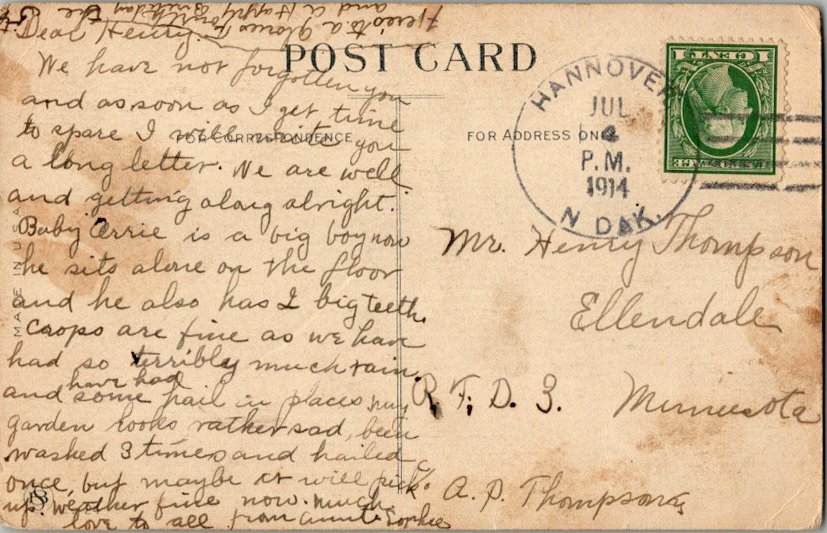 Here's to a glorious fourth
and a Happy Birthday the
Dear Henry:-
POST CARD
We have not forgotten you
and as soon as I get time
to spare I will write you
FOR CORRESPONDENCE
FOR ADDRESS ONLY
a long letter. We are well
and getting along alright.
Baby Orrie is a big boy now
he sits alone on the floor
and he also has 2 big teeth.
Crops are fine as we have
had so terribly much rain
and have had some hail in places, my
garden looks rather sad, been
washed 3 times and hailed
once, but maybe it will pick
up. Weather fine now. Much
love to all from Aunt Sophie
MADE IN U.S.A.
HANNOVER
JUL
4
P.M.
1914
N DAK.
1 CENT 1
Mr. Henry Thompson
Ellendale
R. F. D. 3. Minnesota
c/o. A. P. Thompson